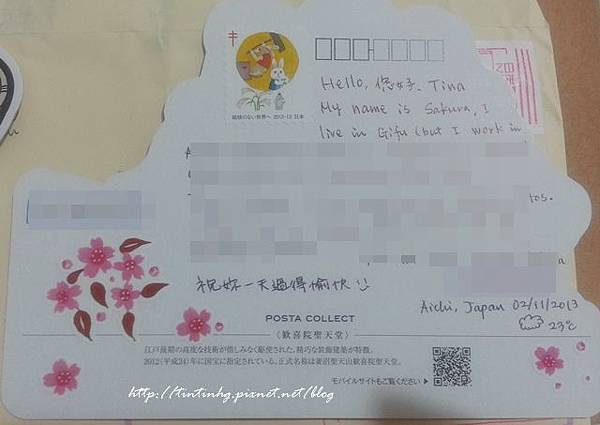 結核のない世界へ 2012-13 日本
Hello, 您好, Tina
My name is Sakura, I
live in Gifu (but I work in
祝妳一天過得愉快
Aichi, Japan 02/11/2013
23℃
POSTA COLLECT
〈歓喜院聖天堂〉
江戸後期の高度な技術が惜しみなく駆使された、精巧な装飾建築が特徴。
2012(平成24)年に国宝に指定されている。正式名称は妻沼聖天山歓喜院聖天堂。
モバイルサイトもご覧ください
http://tintinhg.pixnet.net/blog